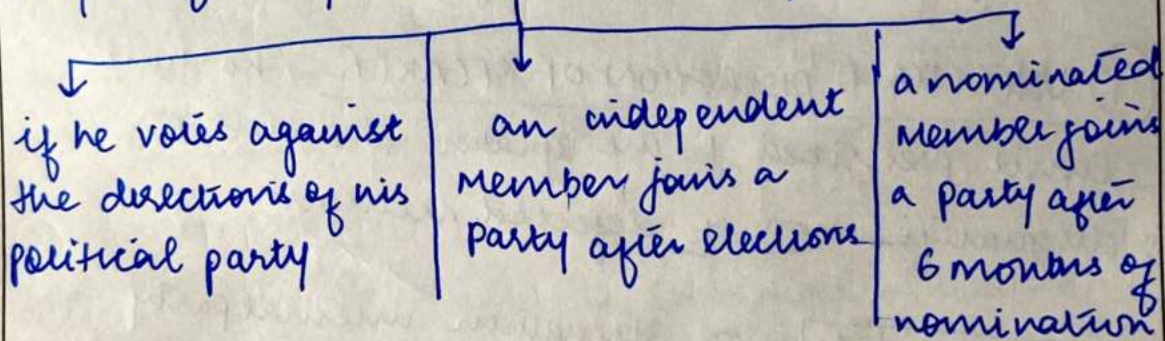 if he votes against
the directions of his
political party
an independent
member joins a
party after elections
a nominated
member joins
a party after
6 months of
nomination